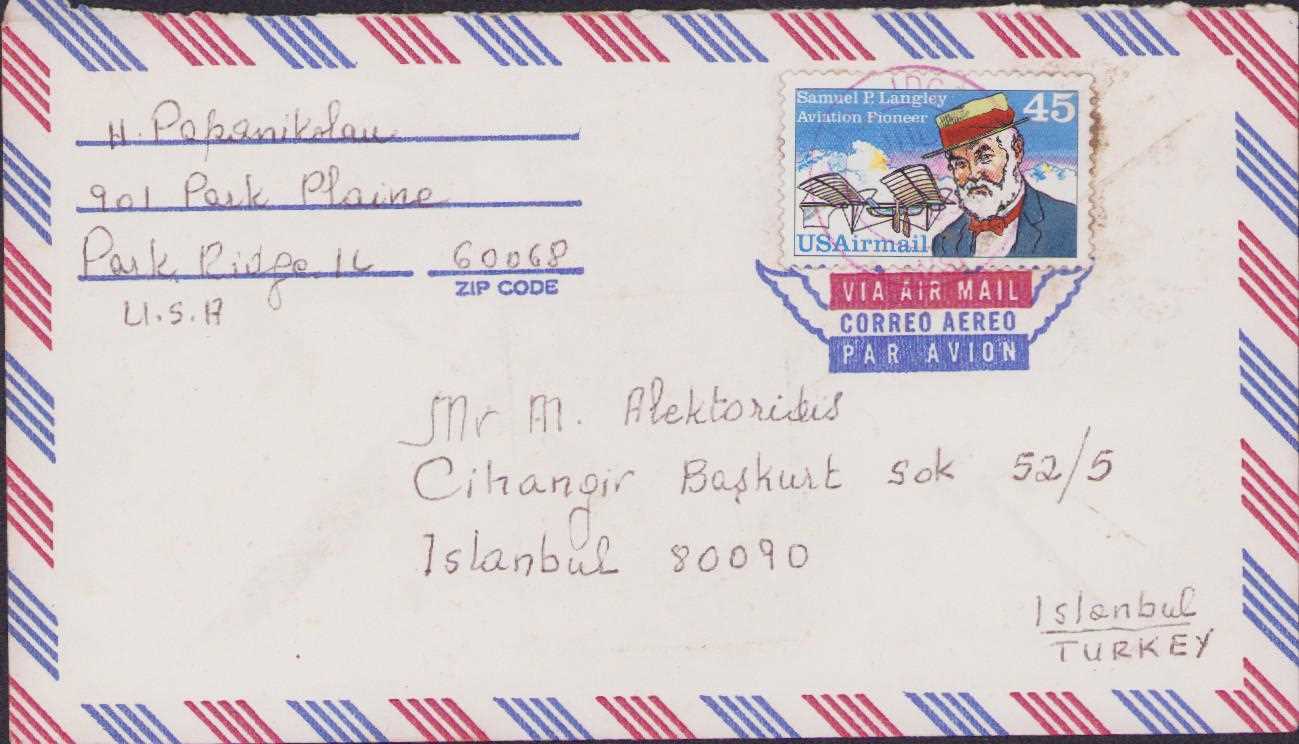 H. Papanikolau
901 Park Plaine
Park Ridge IL 60068
ZIP CODE
U.S.A
Samuel P. Langley
Aviation Pioneer
45
USAirmail
VIA AIR MAIL
CORREO AEREO
PAR AVION
Mr M. Alektoridis
Cihangir Başkurt Sok 52/5
Istanbul 80090
Istanbul
TURKEY